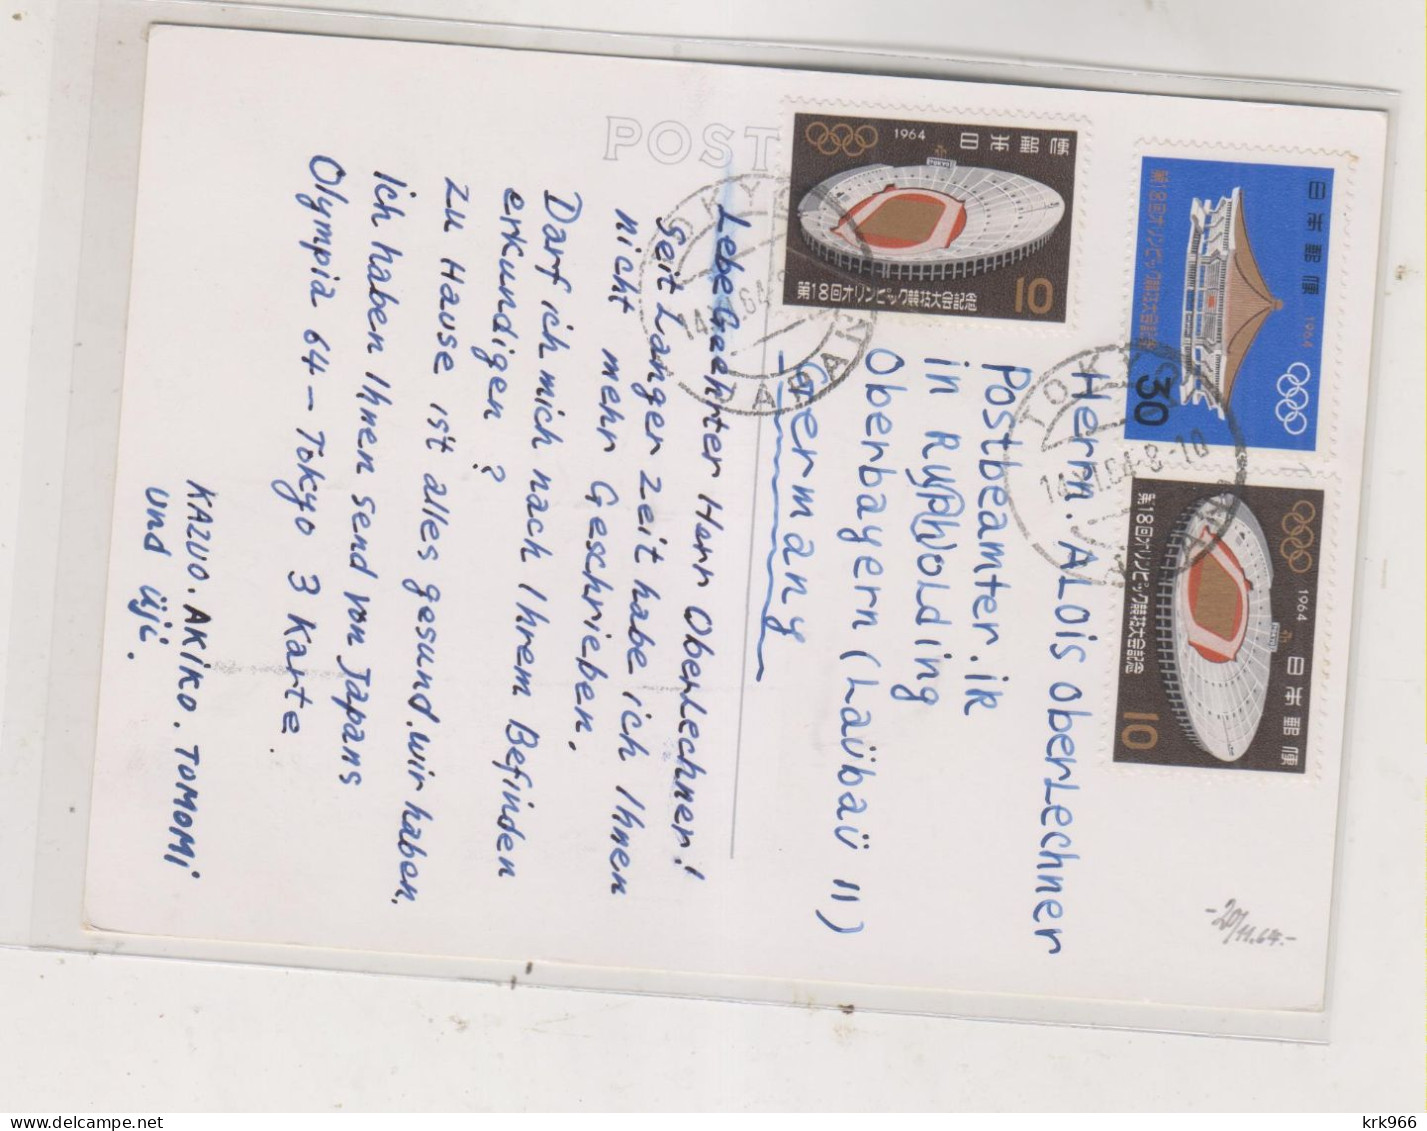 POST
1964
日本郵便
第18回オリンピック競技大会記念
10
日本郵便
1964
第18回オリンピック競技大会記念
30
1964
日本郵便
第18回オリンピック競技大会記念
10
TOKYO
JAPAN
TOKYO
8-10
JAPAN
Lebe Geehrter Herr Oberlechner!
Seit Langer zeit habe ich Ihnen
nicht mehr Geschrieben.
Darf ich mich nach Ihrem Befinden
erkundigen?
Zu Hause ist alles gesund. wir haben.
Ich haben Ihnen send von Japans
Olympia 64 – Tokyo 3 Karte.
KAZUO. AKIKO. TOMOMI
und üji.
Herrn. ALOis oberLechner
Postbeamter. ik
in
Oberbayern (Laübaü 11)
Germany
-20/11.64.-
krk966